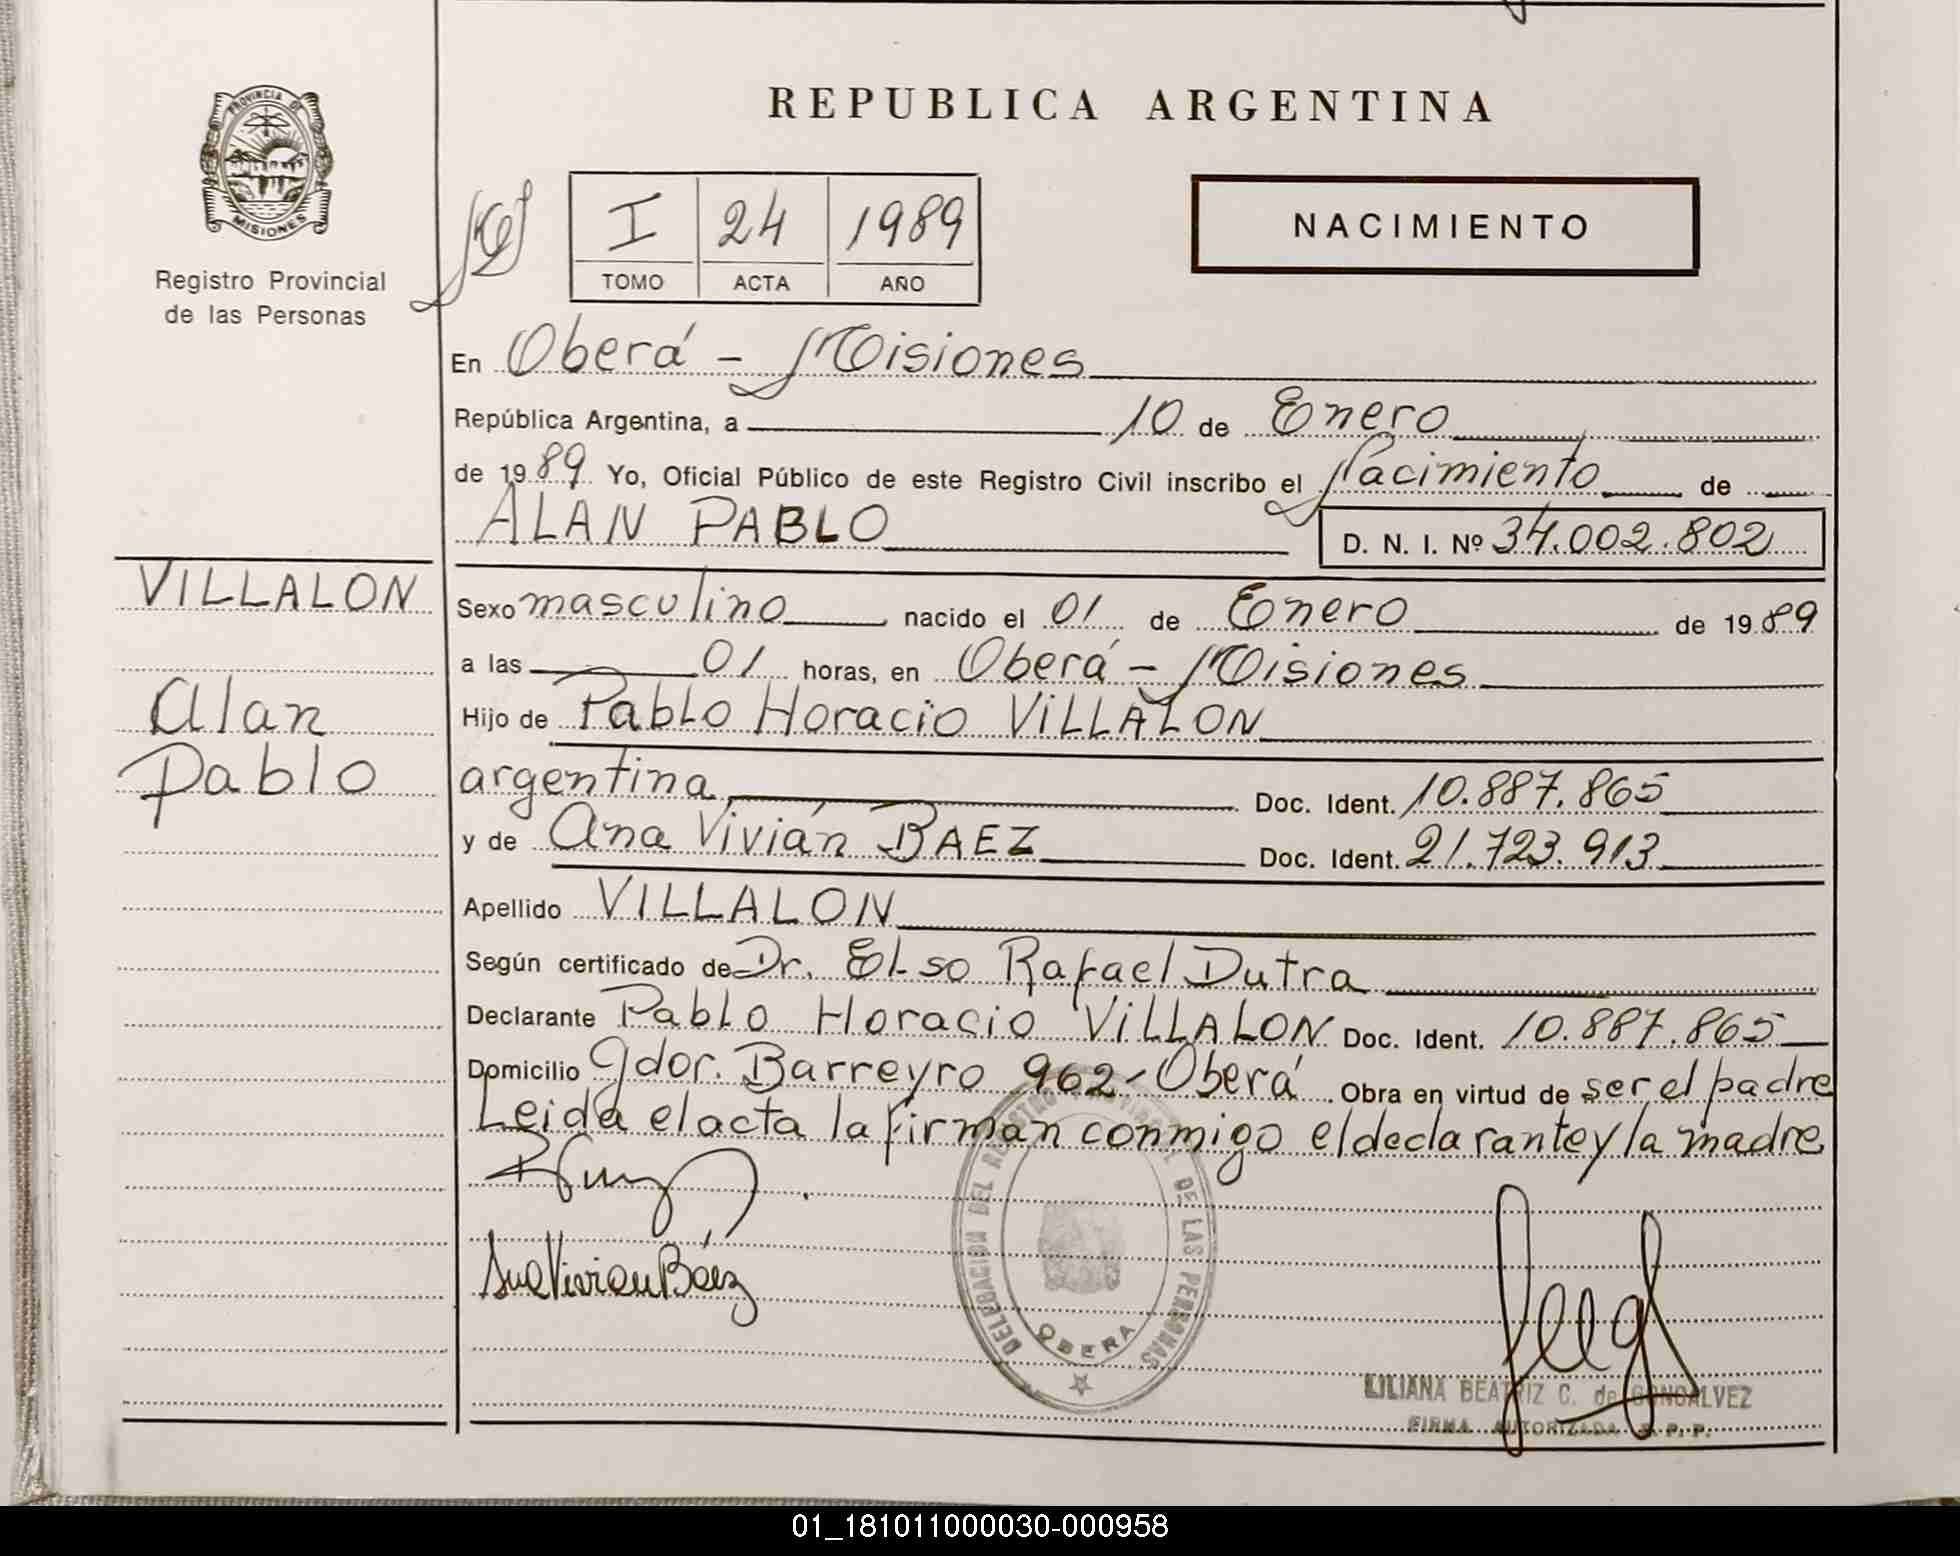 REPUBLICA ARGENTINA
PROVINCIA DE
MISIONES
Registro Provincial
de las Personas
I 24 1989
TOMO ACTA AÑO
NACIMIENTO
En Oberá - Misiones
República Argentina, a 10 de Enero
de 1989 Yo, Oficial Público de este Registro Civil inscribo el Nacimiento de
ALAN PABLO
D. N. I. Nº 34.002.802
VILLALON
Alan
Pablo
Sexo masculino nacido el 01 de Enero de 1989
a las 01 horas, en Oberá - Misiones
Hijo de Pablo Horacio VILLALON
argentina Doc. Ident. 10.887.865
y de Ana Vivián BAEZ Doc. Ident. 21.723.913
Apellido VILLALON
Según certificado de Dr. Elso Rafael Dutra
Declarante Pablo Horacio VILLALON Doc. Ident. 10.887.865
Domicilio Gdor. Barreyro 962-Oberá Obra en virtud de ser el padre
Leida el acta la firman conmigo el declarante y la madre
Ana Vivian Báez
DELEGACION DEL REGISTRO PROVINCIAL DE LAS PERSONAS
OBERA
LILIANA BEATRIZ C. de GONCALVEZ
FIRMA AUTORIZADA R. P. P.
01_181011000030-000958